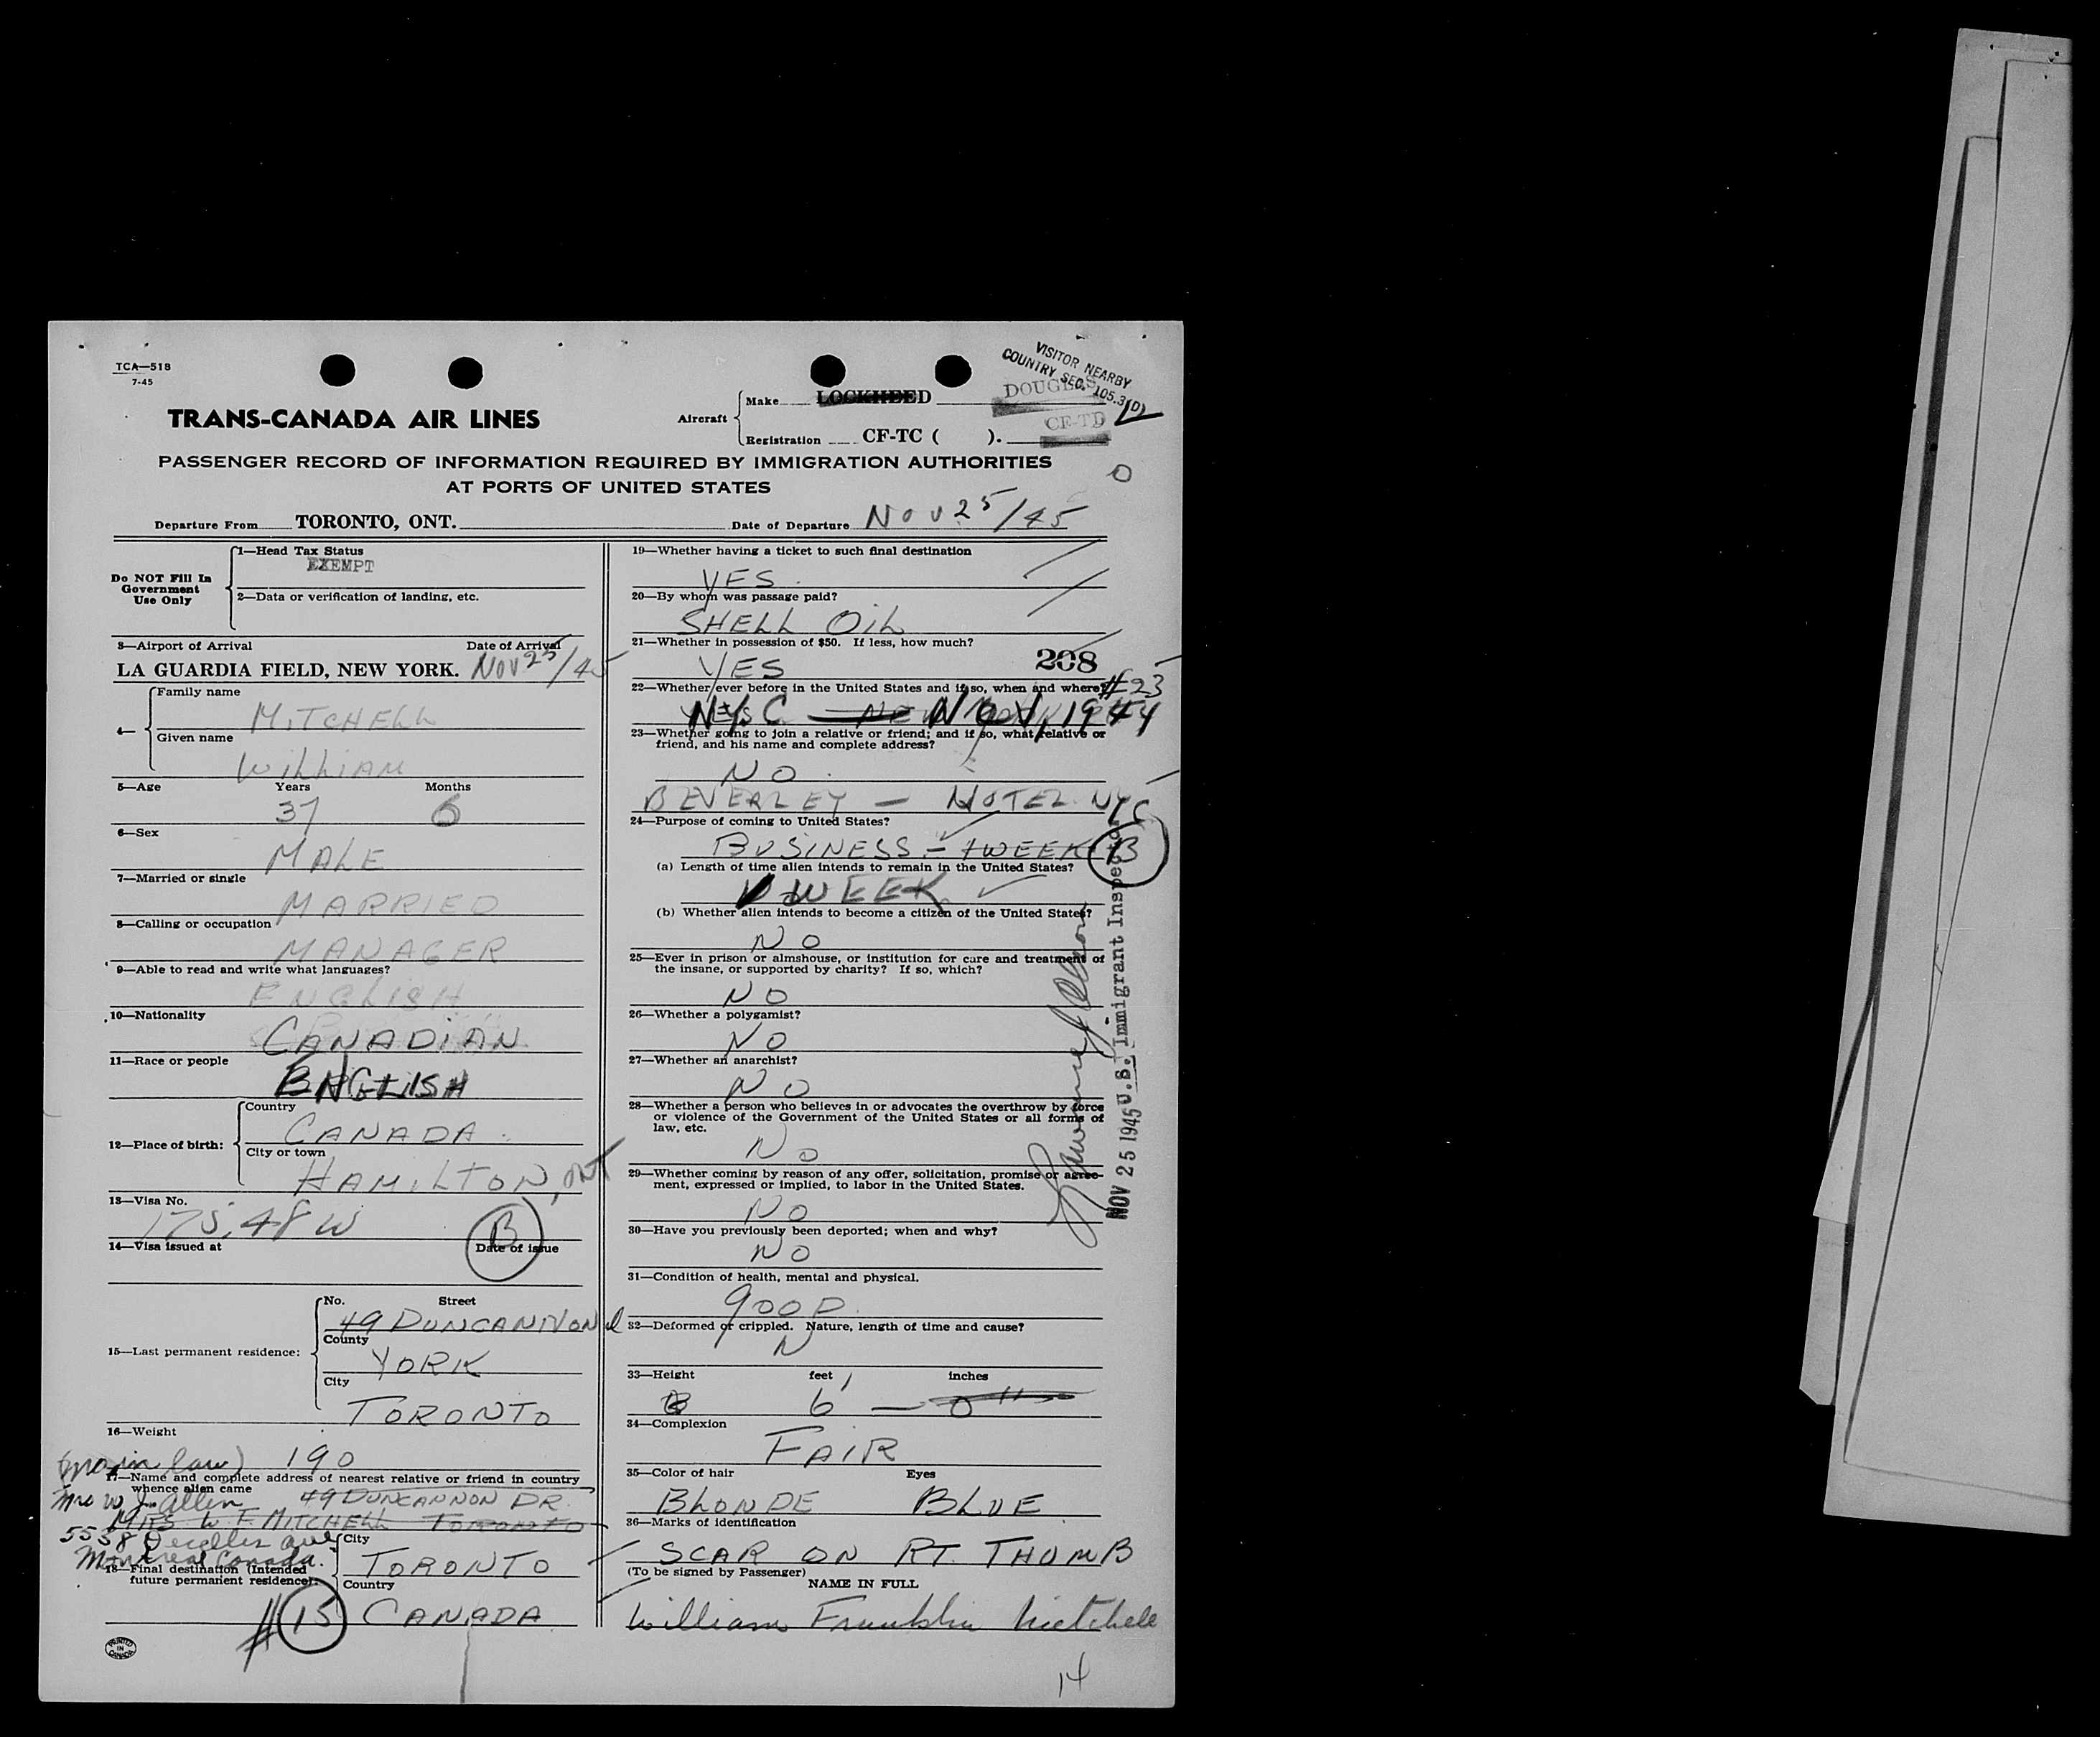 TCA—518
7-45
TRANS-CANADA AIR LINES
Aircraft
Make LOCKHEED
Registration CF-TC ( ).
VISITOR NEARBY
COUNTRY SEC. 105.3(D)
DOUGLAS
CF-TD
PASSENGER RECORD OF INFORMATION REQUIRED BY IMMIGRATION AUTHORITIES
AT PORTS OF UNITED STATES
Departure From TORONTO, ONT. Date of Departure NOV 25/45
Do NOT Fill In
Government
Use Only
1—Head Tax Status
EXEMPT
2—Data or verification of landing, etc.
3—Airport of Arrival Date of Arrival
LA GUARDIA FIELD, NEW YORK. NOV 25/45
4—
Family name
MITCHELL
Given name
WILLIAM
5—Age Years Months
37 6
6—Sex
MALE
7—Married or single
MARRIED
8—Calling or occupation
MANAGER
9—Able to read and write what languages?
ENGLISH
10—Nationality
CANADIAN
11—Race or people
ENGLISH
12—Place of birth:
Country
CANADA
City or town
HAMILTON, ONT
13—Visa No.
175.48 W
B
14—Visa issued at Date of issue
15—Last permanent residence:
No. Street
49 DUNCANNON
County
YORK
City
TORONTO
16—Weight
190
(mo in law)
17—Name and complete address of nearest relative or friend in country
whence alien came
49 DUNCANNON DR.
Mrs W J Allen
MRS W F MITCHELL TORONTO
5538 Decelles ave
Montreal Canada.
18—Final destination (Intended
future permanent residence):
City
TORONTO
Country
CANADA
#15
PRINTED
IN
CANADA
19—Whether having a ticket to such final destination
YES
20—By whom was passage paid?
SHELL OIL
21—Whether in possession of $50. If less, how much?
YES
208
22—Whether ever before in the United States and if so, when and where?
#23
NYC NOV, 1944
23—Whether going to join a relative or friend; and if so, what relative or
friend, and his name and complete address?
NO
BEVERLEY — HOTEL NYC
24—Purpose of coming to United States?
BUSINESS - 1 WEEK
B
(a) Length of time alien intends to remain in the United States?
1 WEEK
(b) Whether alien intends to become a citizen of the United States?
NO
25—Ever in prison or almshouse, or institution for care and treatment of
the insane, or supported by charity? If so, which?
NO
26—Whether a polygamist?
NO
27—Whether an anarchist?
NO
28—Whether a person who believes in or advocates the overthrow by force
or violence of the Government of the United States or all forms of
law, etc.
NO
29—Whether coming by reason of any offer, solicitation, promise or agree-
ment, expressed or implied, to labor in the United States.
NO
30—Have you previously been deported; when and why?
NO
31—Condition of health, mental and physical.
GOOD
32—Deformed or crippled. Nature, length of time and cause?
N
33—Height feet inches
6' — 0"
34—Complexion
FAIR
35—Color of hair Eyes
BLONDE BLUE
36—Marks of identification
SCAR ON RT. THUMB
(To be signed by Passenger)
NAME IN FULL
William Franklin Mitchell
NOV 25 1945 U.S. Immigrant Inspector
14